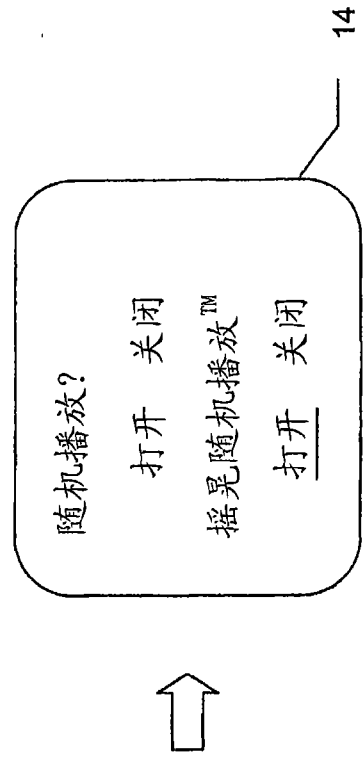 随机播放?
打开 关闭
摇晃随机播放™
打开 关闭
14